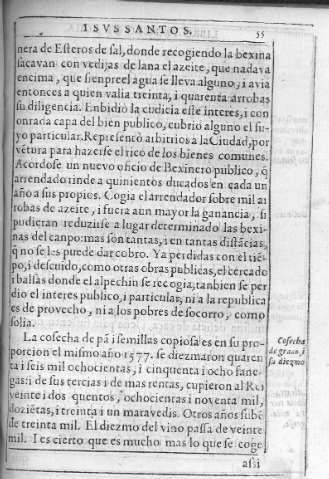 I SVS SANTOS. 55
nera de Esteros de sal, donde recogiendo la bexina
sacavan con vedijas de lana el azeite, que nadava
encima, que sienpre el agua se lleva alguno, i avia
entonces a quien valia treinta, i quarenta arrobas
su diligencia. Enbidiò la cudicia este interes, i con
onrada capa del bien publico, cubriò alguno el su-
yo particular. Representò arbitrios a la Ciudad, por
vẽtura para hazerse el rico de los bienes comunes.
Acordose un nuevo oficio de Bexinero publico, q̃
arrendado rinde a quinientos ducados en cada un
año a sus propios. Cogia el arrendador sobre mil ar
robas de azeite, i fuera aun mayor la ganancia, si
pudieran reduzirse a lugar determinado las bexi-
nas del canpo: mas son tantas, i en tantas distãcias,
q̃ no se les puede dar cobro. Ya perdidas con el tiẽ-
po, i descuido, como otras obras publicas, el cercado
i balsas donde el alpechin se recogia, tanbien se per
dio el interes publico, i particular, ni a la republica
es de provecho, ni a los pobres de socorro, como
solia.
La cosecha de pã i semillas copiosa es en su pro-
porcion el mismo año 1577. se diezmaron quaren
ta i seis mil ochocientas, i cinquenta i ocho fane-
gas: i de sus tercias i de mas rentas, cupieron al Rei
veinte i dos quentos, ochocientas i noventa mil,
doziẽtas, i treinta i un maravedis. Otros años subẽ
de treinta mil. El diezmo del vino passa de veinte
mil. I es cierto que es mucho mas lo que se coge,
Cosecha
de grano, i
su diezmo
assi